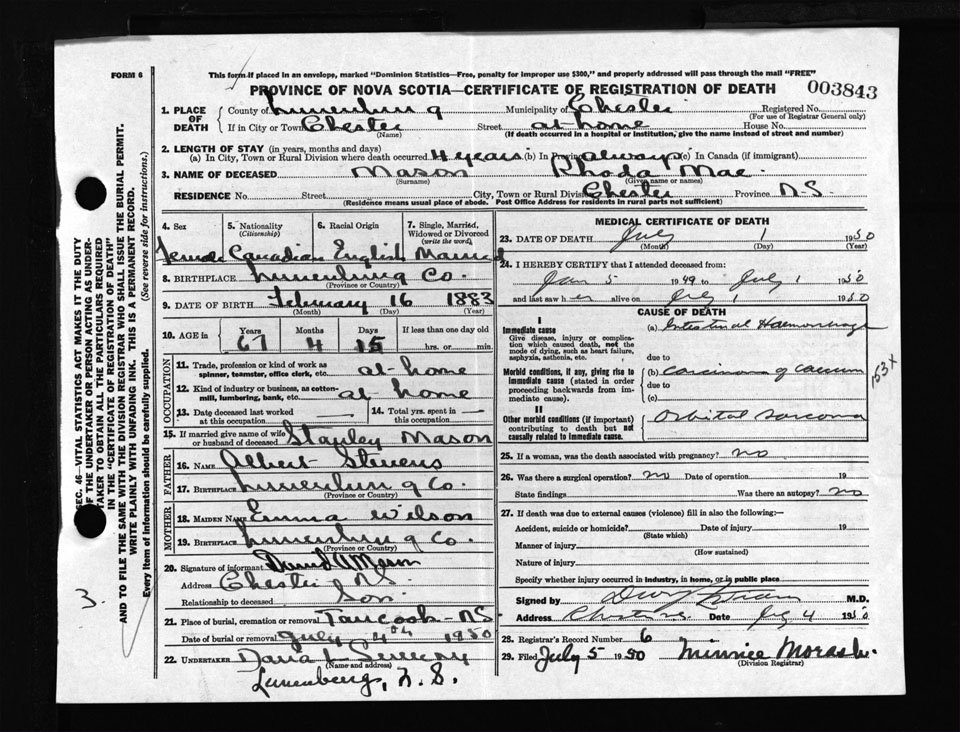 FORM 6
This form if placed in an envelope, marked "Dominion Statistics—Free, penalty for improper use $300," and properly addressed will pass through the mail "FREE"
PROVINCE OF NOVA SCOTIA—CERTIFICATE OF REGISTRATION OF DEATH 003843
1. PLACE OF DEATH
County of Lunenburg Municipality of Chester Registered No.
(For use of Registrar General only)
If in City or Town Chester Street at home House No.
(Name) (If death occurred in a hospital or institution, give the name instead of street and number)
2. LENGTH OF STAY (in years, months and days)
(a) In City, Town or Rural Division where death occurred 4 years (b) In Province always (c) In Canada (if immigrant)
3. NAME OF DECEASED Mason Rhoda Mae
(Surname) (Given name or names)
RESIDENCE No. Street City, Town or Rural Division Chester Province N.S.
(Residence means usual place of abode. Post Office Address for residents in rural parts not sufficient)
4. Sex 5. Nationality (Citizenship) 6. Racial Origin 7. Single, Married, Widowed or Divorced (write the word)
Female Canadian English Married
8. BIRTHPLACE Lunenburg Co.
(Province or Country)
9. DATE OF BIRTH February 16 1883
(Month) (Day) (Year)
10. AGE in Years Months Days If less than one day
67 4 15 hrs. or min.
OCCUPATION
11. Trade, profession or kind of work as spinner, teamster, office clerk, etc. at home
12. Kind of industry or business, as cotton-mill, lumbering, bank, etc. at home
13. Date deceased last worked at this occupation
14. Total yrs. spent in this occupation
15. If married give name of wife or husband of deceased Stanley Mason
FATHER
16. NAME Albert Stevens
17. BIRTHPLACE Lunenburg Co.
(Province or Country)
MOTHER
18. MAIDEN NAME Emma Wilson
19. BIRTHPLACE Lunenburg Co.
(Province or Country)
20. Signature of informant David A Mason
Address Chester, N.S.
Relationship to deceased Son
21. Place of burial, cremation or removal Tancook N.S.
Date of burial or removal July 4th 1950
22. UNDERTAKER Dana L Sweeny
(Name and address)
Lunenburg, N.S.
MEDICAL CERTIFICATE OF DEATH
23. DATE OF DEATH July 1 1950
(Month) (Day) (Year)
24. I HEREBY CERTIFY that I attended deceased from:
Jan 5 1949 to July 1 1950
and last saw her alive on July 1 1950
CAUSE OF DEATH
I
Immediate cause
Give disease, injury or complication which caused death, not the mode of dying, such as heart failure, asphyxia, asthenia, etc.
(a) Intestinal Haemorrhage
due to
Morbid conditions, if any, giving rise to immediate cause (stated in order proceeding backwards from immediate).
(b) Carcinoma of Caecum
due to
(c)
153x
II
Other morbid conditions (if important) contributing to death but not causally related to immediate cause.
Orbital sarcoma
25. If a woman, was the death associated with pregnancy? no
26. Was there a surgical operation? no Date of operation 19
State findings Was there an autopsy? no
27. If death was due to external causes (violence) fill in also the following:—
Accident, suicide or homicide? Date of injury 19
(State which)
Manner of injury
(How sustained)
Nature of injury
Specify whether injury occurred in industry, in home, or in public place
Signed by M.D.
Address Chester N.S. Date July 4 1950
28. Registrar's Record Number 6
29. Filed July 5 1950 Minnie Morash
(Division Registrar)
SEC. 46—VITAL STATISTICS ACT MAKES IT THE DUTY
OF THE UNDERTAKER OR PERSON ACTING AS UNDER-
TAKER TO OBTAIN ALL THE PARTICULARS REQUIRED
IN THE "CERTIFICATE OF REGISTRATION OF DEATH"
AND TO FILE THE SAME WITH THE DIVISION REGISTRAR WHO SHALL ISSUE THE BURIAL PERMIT.
WRITE PLAINLY WITH UNFADING INK. THIS IS A PERMANENT RECORD.
Every item of information should be carefully supplied. (See reverse side for instructions.)
3.